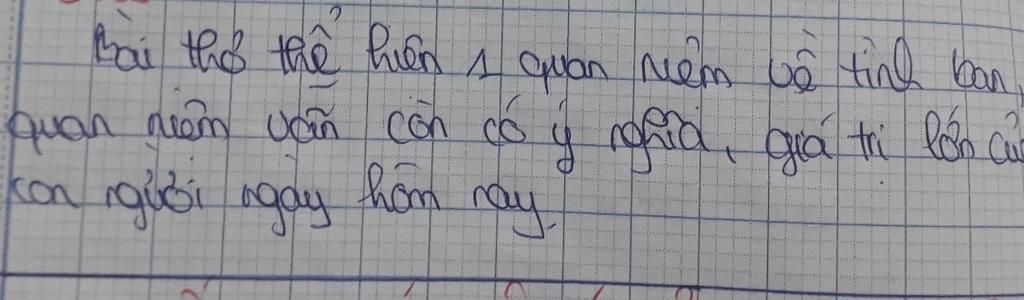 Bài thơ thể hiện 1 quan niệm về tình bạn,
quan niệm vẫn còn có ý nghĩa, giá trị lớn củ
con người ngày hôm nay.